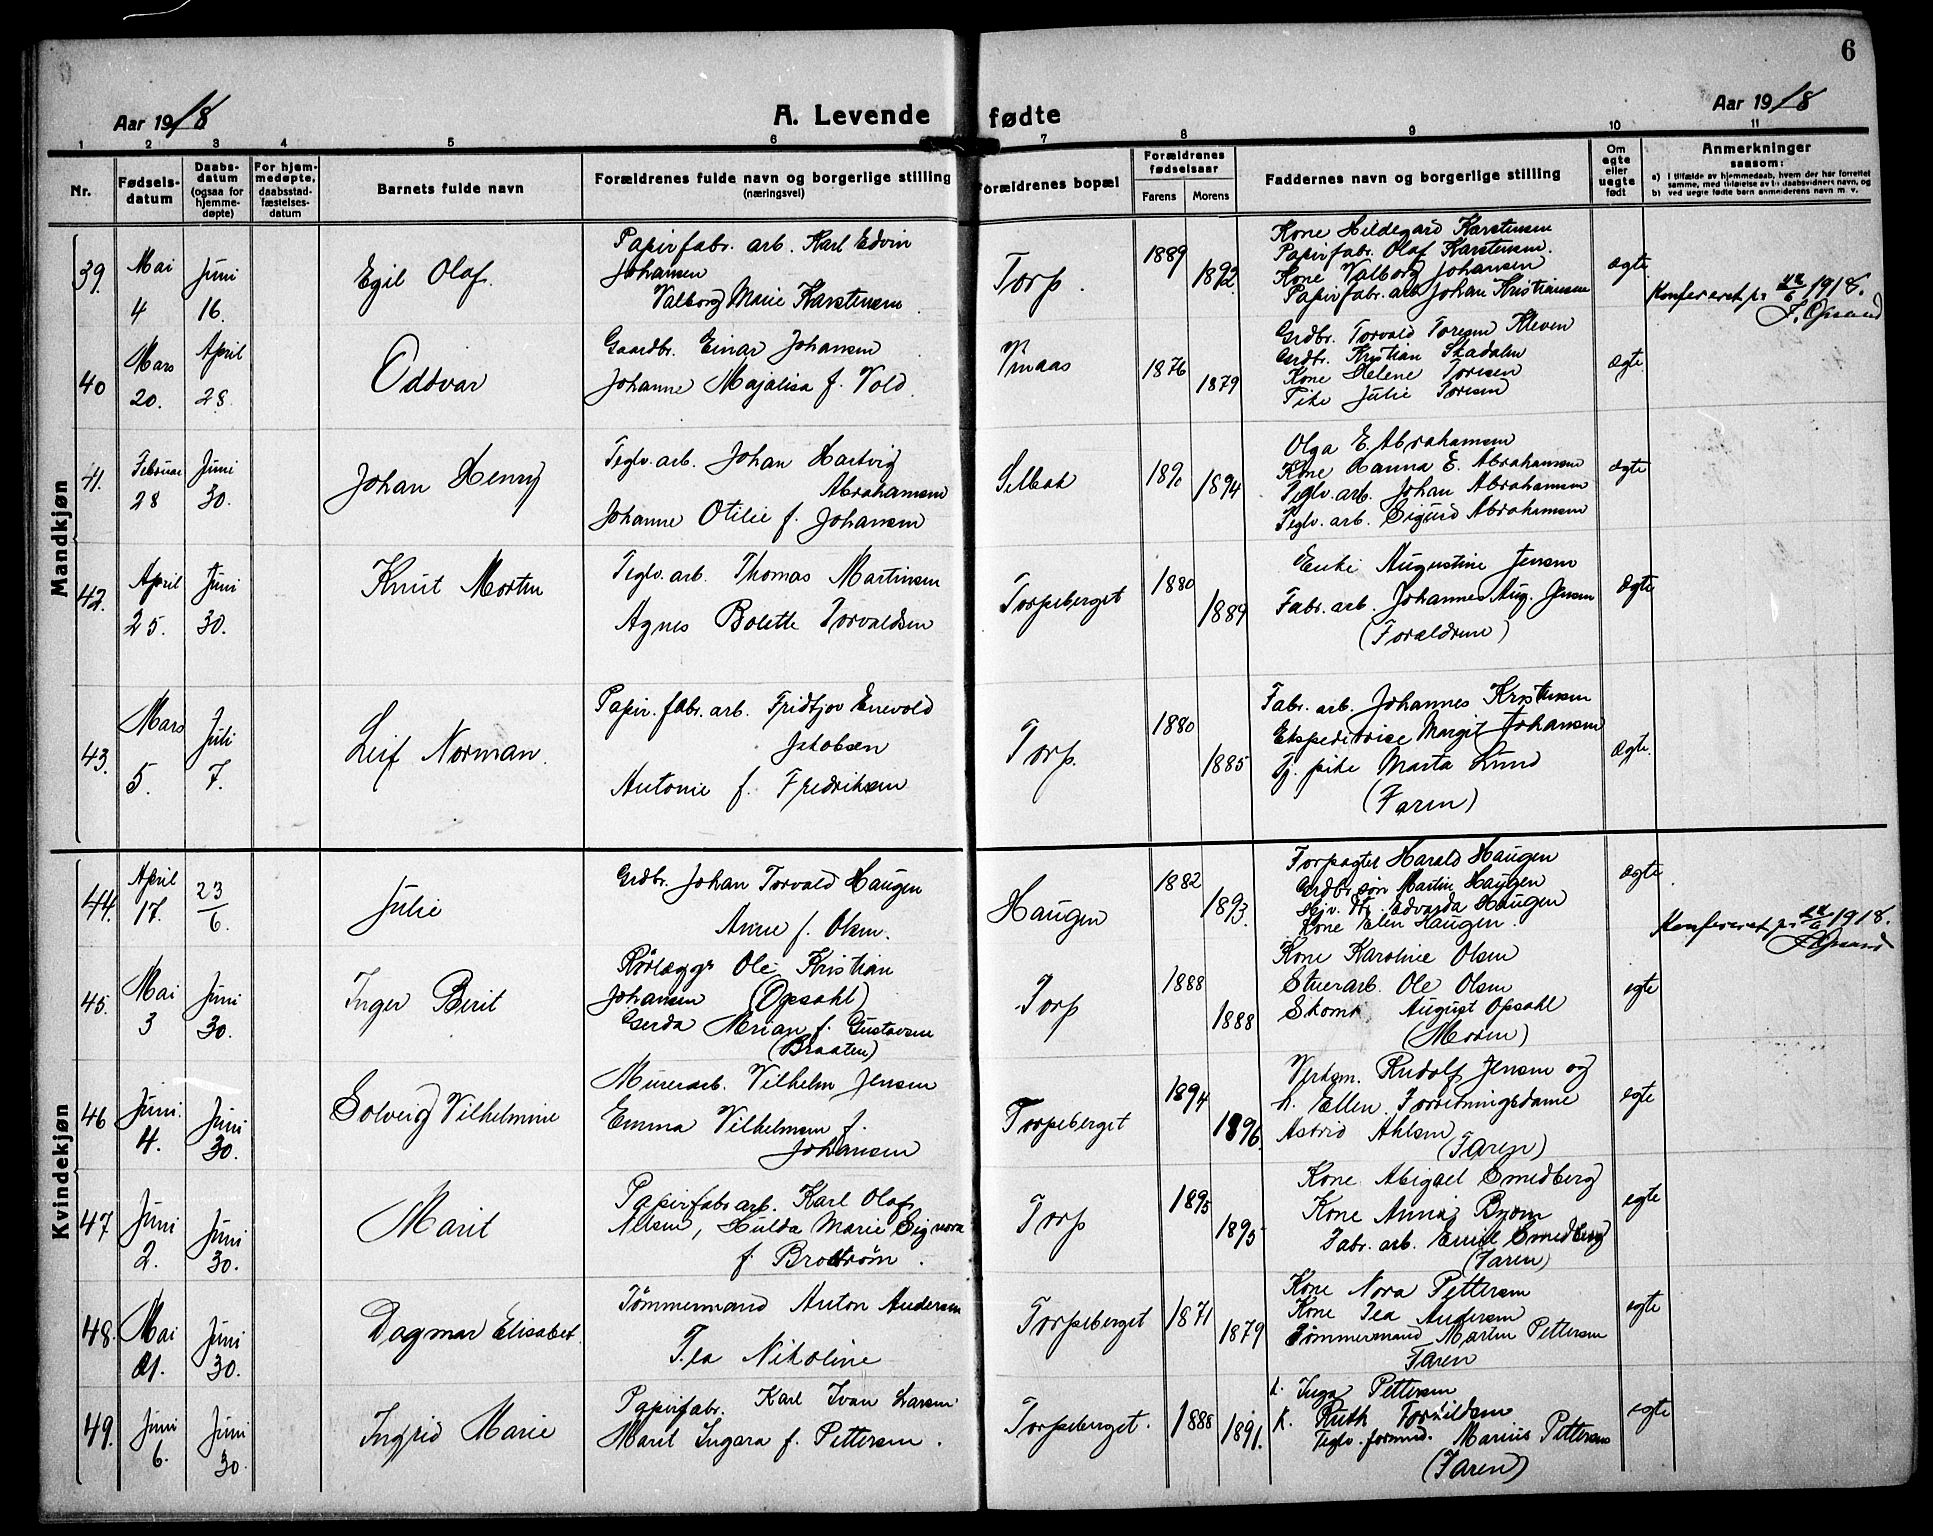 6
Aar 1918
A. Levende fødte
Aar 1918
1 2 3 4 5 6 7 8 9 10 11
Nr.
Fødsels-
datum
Daabs-
datum
(ogsaa for
hjemme-
døpte)
For hjem-
medøpte,
daabsstad-
fæstelses-
datum
Barnets fulde navn
Forældrenes fulde navn og borgerlige stilling
(næringsvei)
Forældrenes bopæl
Forældrenes
fødselsaar
Farens Morens
Faddernes navn og borgerlige stilling
Om
egte
eller
uegte
født
Anmerkninger
saasom:
a) I tilfælde av hjemmedaab, hvem der har forrettet
samme, med tilføielse av to daabsvidners navn, og
b) ved uegte fødte børn anmelderens navn m. v.
Mandkjøn
39.
Mai
4
Juni
16.
Egil Olaf.
Papirfabr. arb. Karl Edvin
Johansen
Valborg Marie Karstensen
Torp.
1889
1892
Kone Hildegard Karstensen
Papirfabr. Olaf Karstensen.
Kone Valborg Johansen
Papirfabr. arb Johan Kristiansen
ægte
Konfereret pr 1918.
40
Mars
20.
April
28.
Oddvar
Gaardbr. Einar Johansen
Johanne Majalisa f. Vold.
Vinaas
1876
1879
Grdbr. Torvald Toresen Kleven
Grdbr. Kristian Skadalen
Kone Helene Toresen
Pike Julie Toresen
ægte
41.
Februar
28
Juni
30.
Johan Henry
Teglv. arb. Johan Hartvig
Abrahamsen
Johanne Otilie f. Johansen
Selbak
1890
1894
Olga E. Abrahamsen
Kone Hanna E. Abrahamsen
Teglv. arb. Johan Abrahamsen
Teglv. arb. Sigurd Abrahamsen
ægte
42.
April
25.
Juni
30.
Knut Morten
Teglv. arb. Thomas Martinsen
Agnes Bolette Torvaldsen
Torpeberget
1880
1889
Enke Augustine Jensen
Fabr. arb. Johannes Aug. Jensen
(Forældrene)
Ægte
43.
Mars
5.
Juli
7.
Leif Norman.
Papir. fabr. arb. Fridtjov Enevold
Jakobsen
Antonie f. Fredriksen
Torp.
1880
1885
Fabr. arb. Johannes Kristensen
Ekspeditrise Margit Johansen
Tj. pike Marta Lund
(Faren)
Ægte.
Kvindekjøn
44.
April
17.
23/6.
Julie
Grdbr. Johan Torvald Haugen
Anne f. Olsen.
Haugen
1882
1893.
Forpagter Harald Haugen
Grdbr søn Martin Haugen
Hjv. dtr. Edvarda Haugen
Kone Elen Haugen.
ægte.
Konfereret pr 1918.
45.
Mai
3
Juni
30.
Inger Berit
Rørlægger Ole Kristian
Johansen (Opsahl)
Gerda Merian f. Gustavsen
(Braaten)
Torp
1888
1888
Kone Karoline Olsen
Stuerarb. Ole Olsen
Skom. August Opsahl
(Moren)
egte
46
Juni.
4.
Juni
30.
Solveig Vilhelmine
Murerarb. Vilhelm Jensen
Emma Vilhelmsen f.
Johansen
Torpeberget
1894
1896.
Verksm. Rudolf Jensen og
h. Ellen. Forretningsdame
Astrid Ahlsen
(Faren)
egte
47
Juni
2.
Juni
30.
Marit
Papirfabr arb. Karl Olaf
Nilsen, Hulda Marie Signora
f. Brostrøm.
Torp
1895
1895
Kone Abigael Smedberg
Kone Anna Byom
Fabr. arb. Emil Smedberg
(Faren)
egte
48.
Mai
21.
Juni
30.
Dagmar Elisabet.
Tømmermand Anton Andersen
Tea Nikoline
Torpeberget
1871
1879
Kone Nora Pettersen
Kone Tea Andersen
Tømmermand Martin Pettersen
Faren
egte
49.
Juni
6.
Juni
30.
Ingrid Marie
Papirfabr. Karl Ivan Larsen
Marit Ingara f. Pettersen.
Torpeberget.
1888
1891.
k. Inga Pettersen
k. Ruth Torkildsen
Teglv. formnd. Marius Pettersen
(Faren)
egte